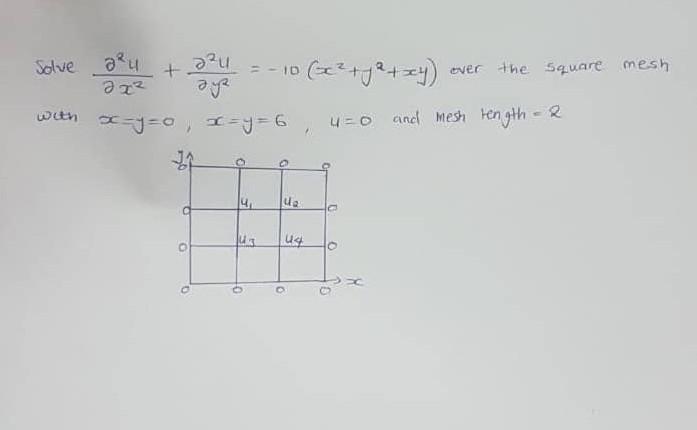 Solve ∂²u/∂x² + ∂²u/∂y² = -10 (x²+y²+xy) over the square mesh
with x=y=0, x=y=6, u=0 and mesh length = 2
y
0 0 0 0
u₁ u₂
0 0
u₃ u₄
0 0
x
0 0 0 0